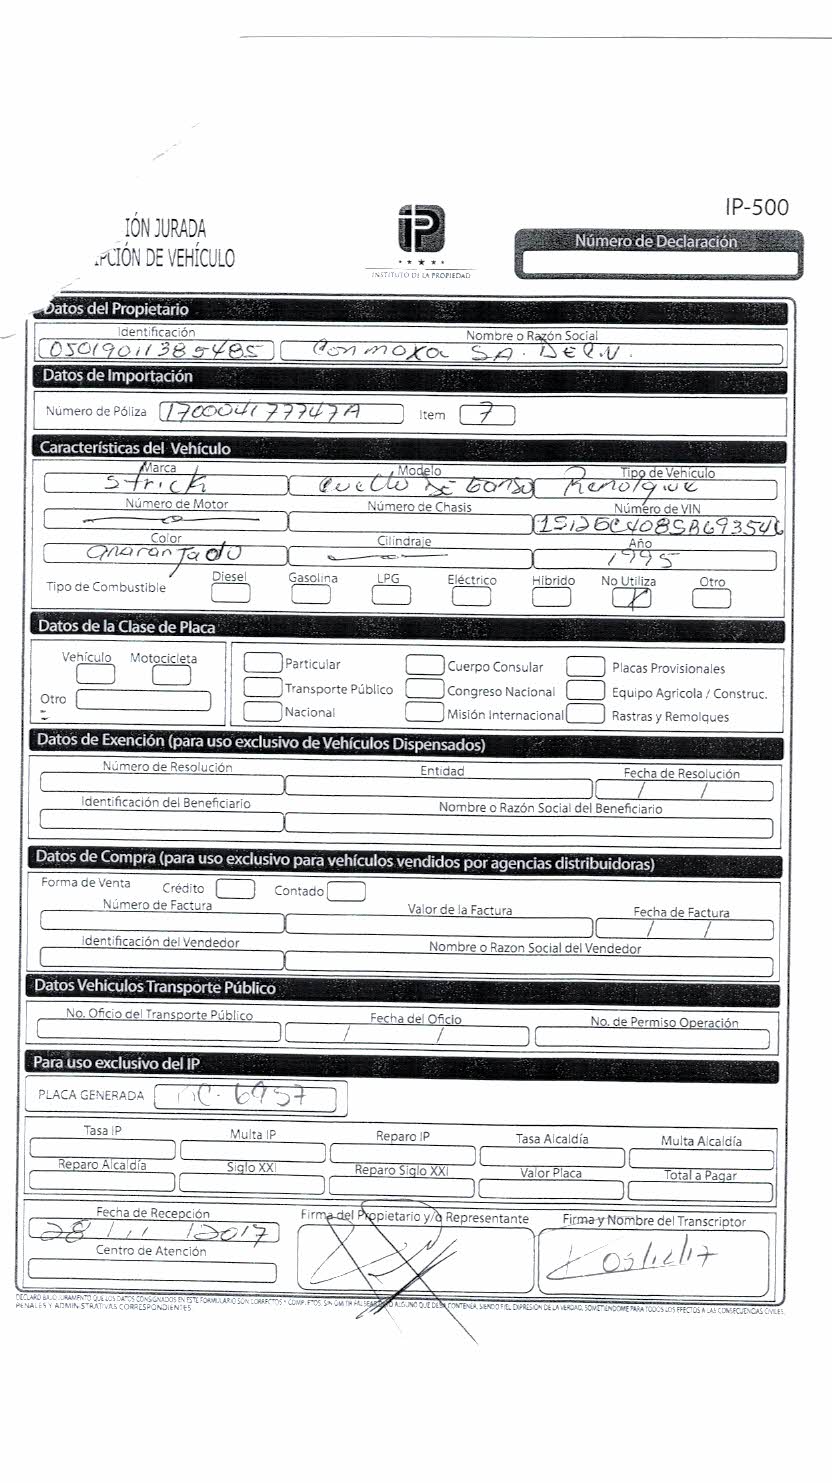 IP-500
IÓN JURADA
PCIÓN DE VEHÍCULO
iP
INSTITUTO DE LA PROPIEDAD
Número de Declaración
Datos del Propietario
Identificación Nombre o Razón Social
05019011385485 Conmoxa S.A. DE C.V.
Datos de Importación
Número de Póliza 170004177747A Item 7
Características del Vehículo
Marca Modelo Tipo de Vehículo
Strick Cuello DE Ganso Remolque
Número de Motor Número de Chasis Número de VIN
Color Cilindraje Año
anaranjado 1995
Tipo de Combustible Diesel Gasolina LPG Eléctrico Híbrido No Utiliza Otro
X
Datos de la Clase de Placa
Vehículo Motocicleta
Otro
Particular Cuerpo Consular Placas Provisionales
Transporte Público Congreso Nacional Equipo Agricola / Construc.
Nacional Misión Internacional Rastras y Remolques
Datos de Exención (para uso exclusivo de Vehículos Dispensados)
Número de Resolución Entidad Fecha de Resolución
/ /
Identificación del Beneficiario Nombre o Razón Social del Beneficiario
Datos de Compra (para uso exclusivo para vehículos vendidos por agencias distribuidoras)
Forma de Venta Crédito Contado
Número de Factura Valor de la Factura Fecha de Factura
/ /
Identificación del Vendedor Nombre o Razon Social del Vendedor
Datos Vehículos Transporte Público
No. Oficio del Transporte Público Fecha del Oficio No. de Permiso Operación
/ /
Para uso exclusivo del IP
PLACA GENERADA C-6957
Tasa IP Multa IP Reparo IP Tasa Alcaldía Multa Alcaldía
Reparo Alcaldía Siglo XXI Reparo Siglo XXI Valor Placa Total a Pagar
Fecha de Recepción Firma del Propietario y/o Representante Firma y Nombre del Transcriptor
28 / 11 / 2017
Centro de Atención
DECLARO BAJO JURAMENTO QUE LOS DATOS CONSIGNADOS EN ESTE FORMULARIO SON CORRECTOS Y COMPLETOS, SIN OMITIR FALSEAR DATO ALGUNO QUE DEBA CONTENER, SIENDO FIEL EXPRESION DE LA VERDAD, SOMETIÉNDOME PARA TODOS LOS EFECTOS A LAS CONSECUENCIAS CIVILES,
PENALES Y ADMINISTRATIVAS CORRESPONDIENTES